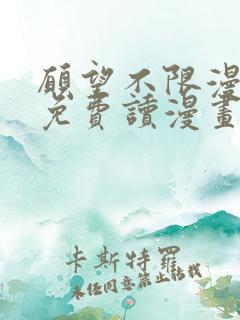 願望不限漫
免費讀漫畫
卡斯特羅
未經同意禁止轉載